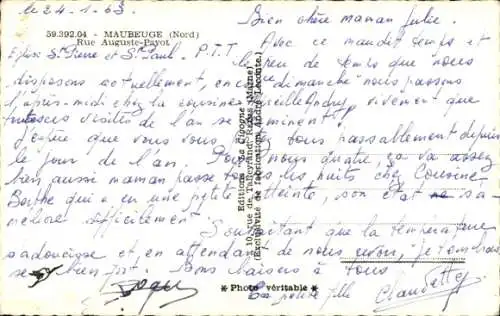 le 24.1.63.
Bien chère maman Julie.
59.392.04 - MAUBEUGE (Nord)
Rue Auguste-Payot
Eglise St Pierre et St Paul. P.T.T
Avec ce maudit temps et
le peu de temps que nous
disposons actuellement, en ce dimanche nous passons
l'après-midi chez la cousine vivement que
visites de l'an se terminent.
J'espère que vous vous tous passablement depuis
le jour de l'an. Pour nous quatre, ça va assez
bien, aussi maman passe tous les nuits chez Cousine
Berthe qui a eu une petite atteinte son état ne s'a-
méliore difficilement. Souhaitant que la température
s'adoucisse et, en attendant de nous revoir, je t'embrasse
bien fort. Bons baisers à tous
Ta petite fille Claudette
Editions "La Cigogne"
10, rue de Talleyrand - Reims (Marne)
(Exclusivité de fabrication André Leconte.)
* Photo véritable *